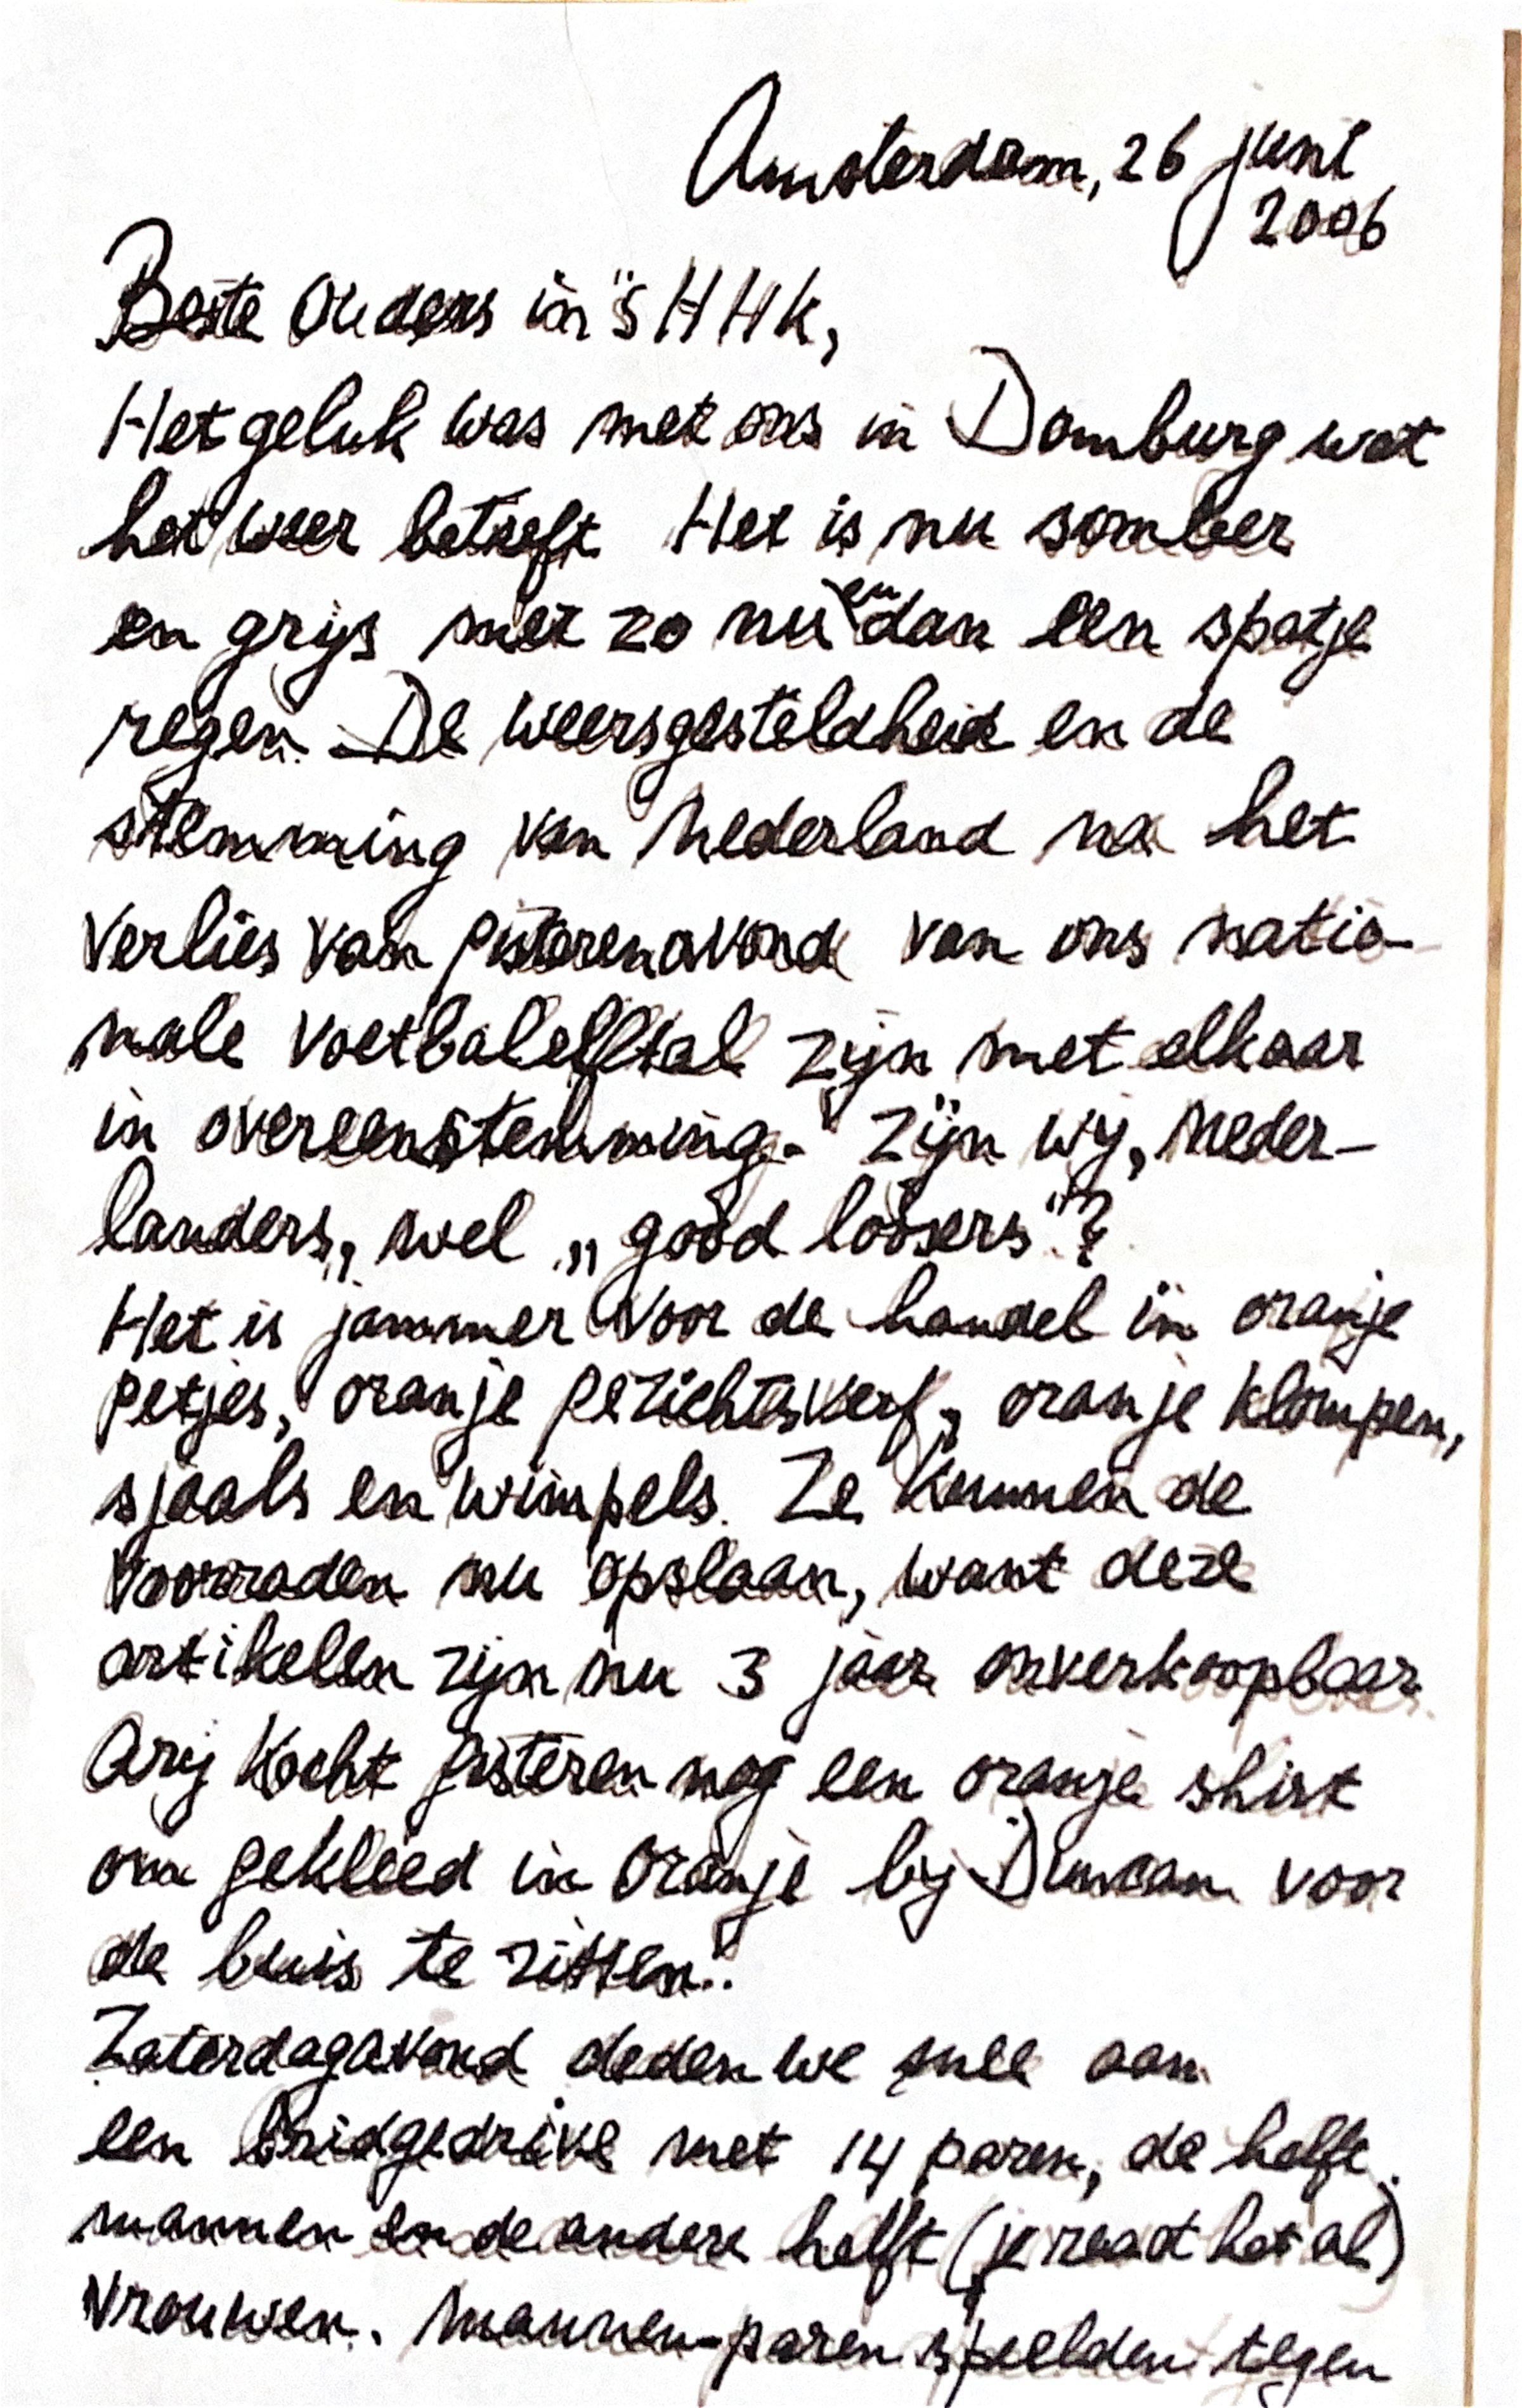 Amsterdam, 26 juni
2006
Beste Ouders in 's HHk,
Het geluk was met ons in Domburg wat
het weer betreft. Het is nu somber
en grijs met zo nu en dan een spatje
regen. De weersgesteldheid en de
stemming van Nederland na het
verlies van gisterenavond van ons natio-
nale voetbalelftal zijn met elkaar
in overeenstemming. Zijn wij, Neder-
landers, wel „good loosers"?
Het is jammer voor de handel in oranje
petjes, oranje gezichtsverf, oranje klompen,
sjaals en wimpels. Ze kunnen de
voorraden nu opslaan, want deze
artikelen zijn nu 3 jaar onverkoopbaar.
Arij kocht gisteren nog een oranje shirt
om gekleed in oranje bij Duncan voor
de buis te zitten.
Zaterdagavond deden we mee aan
een bridgedrive met 14 paren, de helft
mannen en de andere helft (je raadt het al)
vrouwen. Mannen-paren speelden tegen